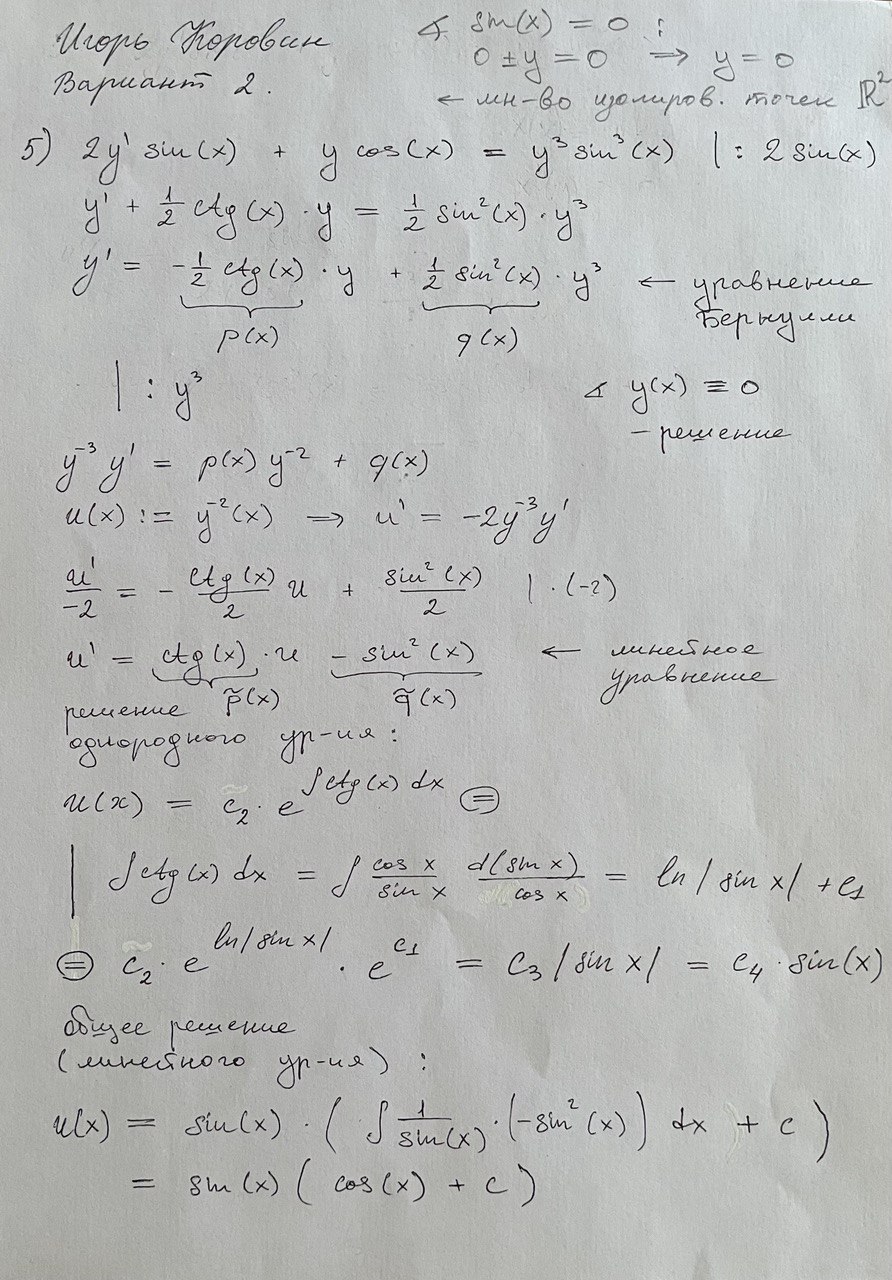 Игорь Коровин
Вариант 2.
∢ sin(x) = 0 :
0 ± y = 0 ⟹ y = 0
← мн-во изолиров. точек ℝ²
5) 2y' sin(x) + y cos(x) = y³ sin³(x) | : 2 sin(x)
y' + 1/2 ctg(x) · y = 1/2 sin²(x) · y³
y' = -1/2 ctg(x) · y + 1/2 sin²(x) · y³ ← уравнение
Бернулли
p(x) q(x)
| : y³ ∢ y(x) ≡ 0
– решение
y⁻³ y' = p(x) y⁻² + q(x)
u(x) := y⁻²(x) ⟹ u' = -2y⁻³y'
u'/-2 = - ctg(x)/2 u + sin²(x)/2 | · (-2)
u' = ctg(x) · u - sin²(x) ← линейное
уравнение
p̃(x) q̃(x)
решение
однородного ур-ия :
u(x) = c̃₂ · e^∫ctg(x) dx ⊜
| ∫ctg(x) dx = ∫ cos x/sin x d(sin x)/cos x = ln|sin x| + c₁
⊜ c̃₂ · e^ln|sin x| · e^c₁ = c₃ |sin x| = c₄ · sin(x)
общее решение
(линейного ур-ия) :
u(x) = sin(x) · ( ∫ 1/sin(x) · (-sin²(x)) dx + c )
= sin(x) ( cos(x) + c )